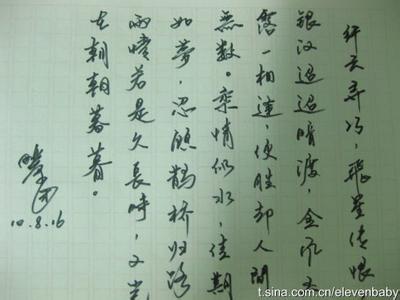 纤云弄巧，飛星传恨
银汉迢迢暗渡，金風玉
露一相逢，便胜却人間
無数。柔情似水，佳期
如夢，忍顾鹊桥归路
兩情若是久長時，又岂
在朝朝暮暮。
10.8.16
t.sina.com.cn/elevenbaby